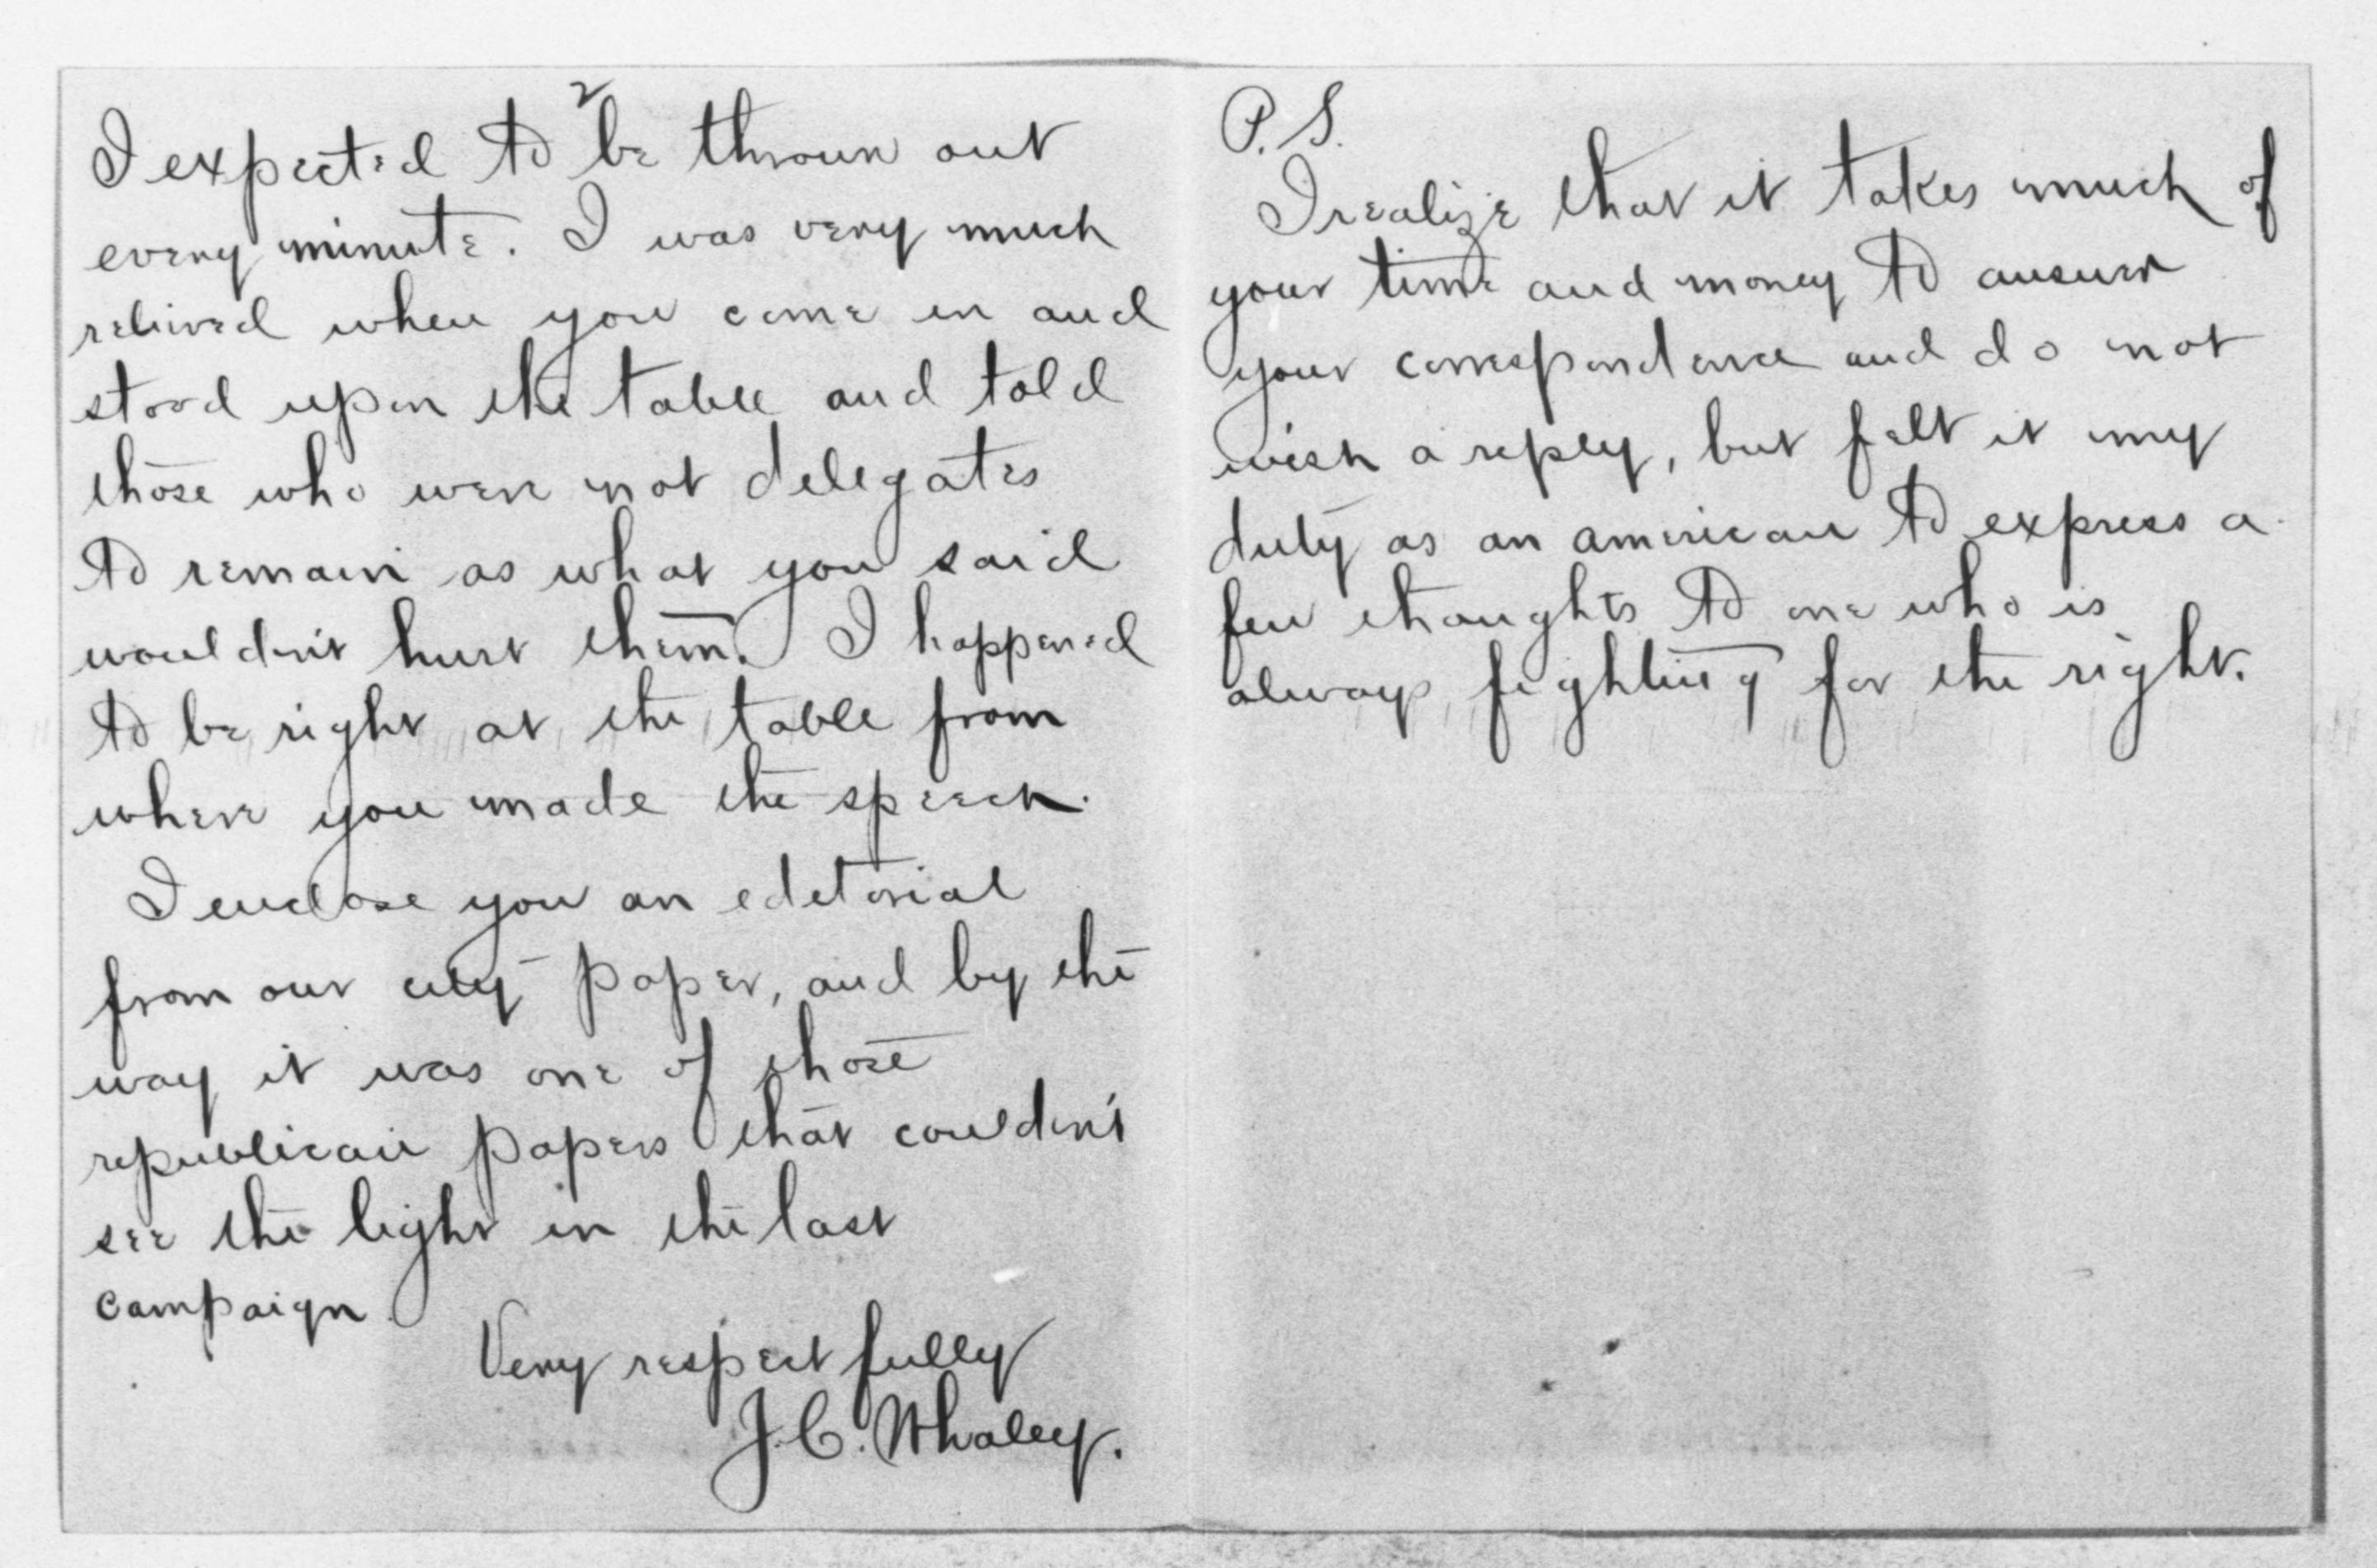 2
I expected to be thrown out
every minute. I was very much
relieved when you came in and
stood upon the table and told
those who were not delegates
to remain as what you said
wouldn't hurt them. I happened
to be right at the table from
where you made the speech.
I enclose you an editorial
from our city paper, and by the
way it was one of those
republican papers that couldn't
see the light in the last
campaign.
Very respectfully
J. C. Whaley.
P.S.
I realize that it takes much of
your time and money to answer
your correspondence and do not
wish a reply, but felt it my
duty as an american to express a
few thoughts to one who is
always fighting for the right.